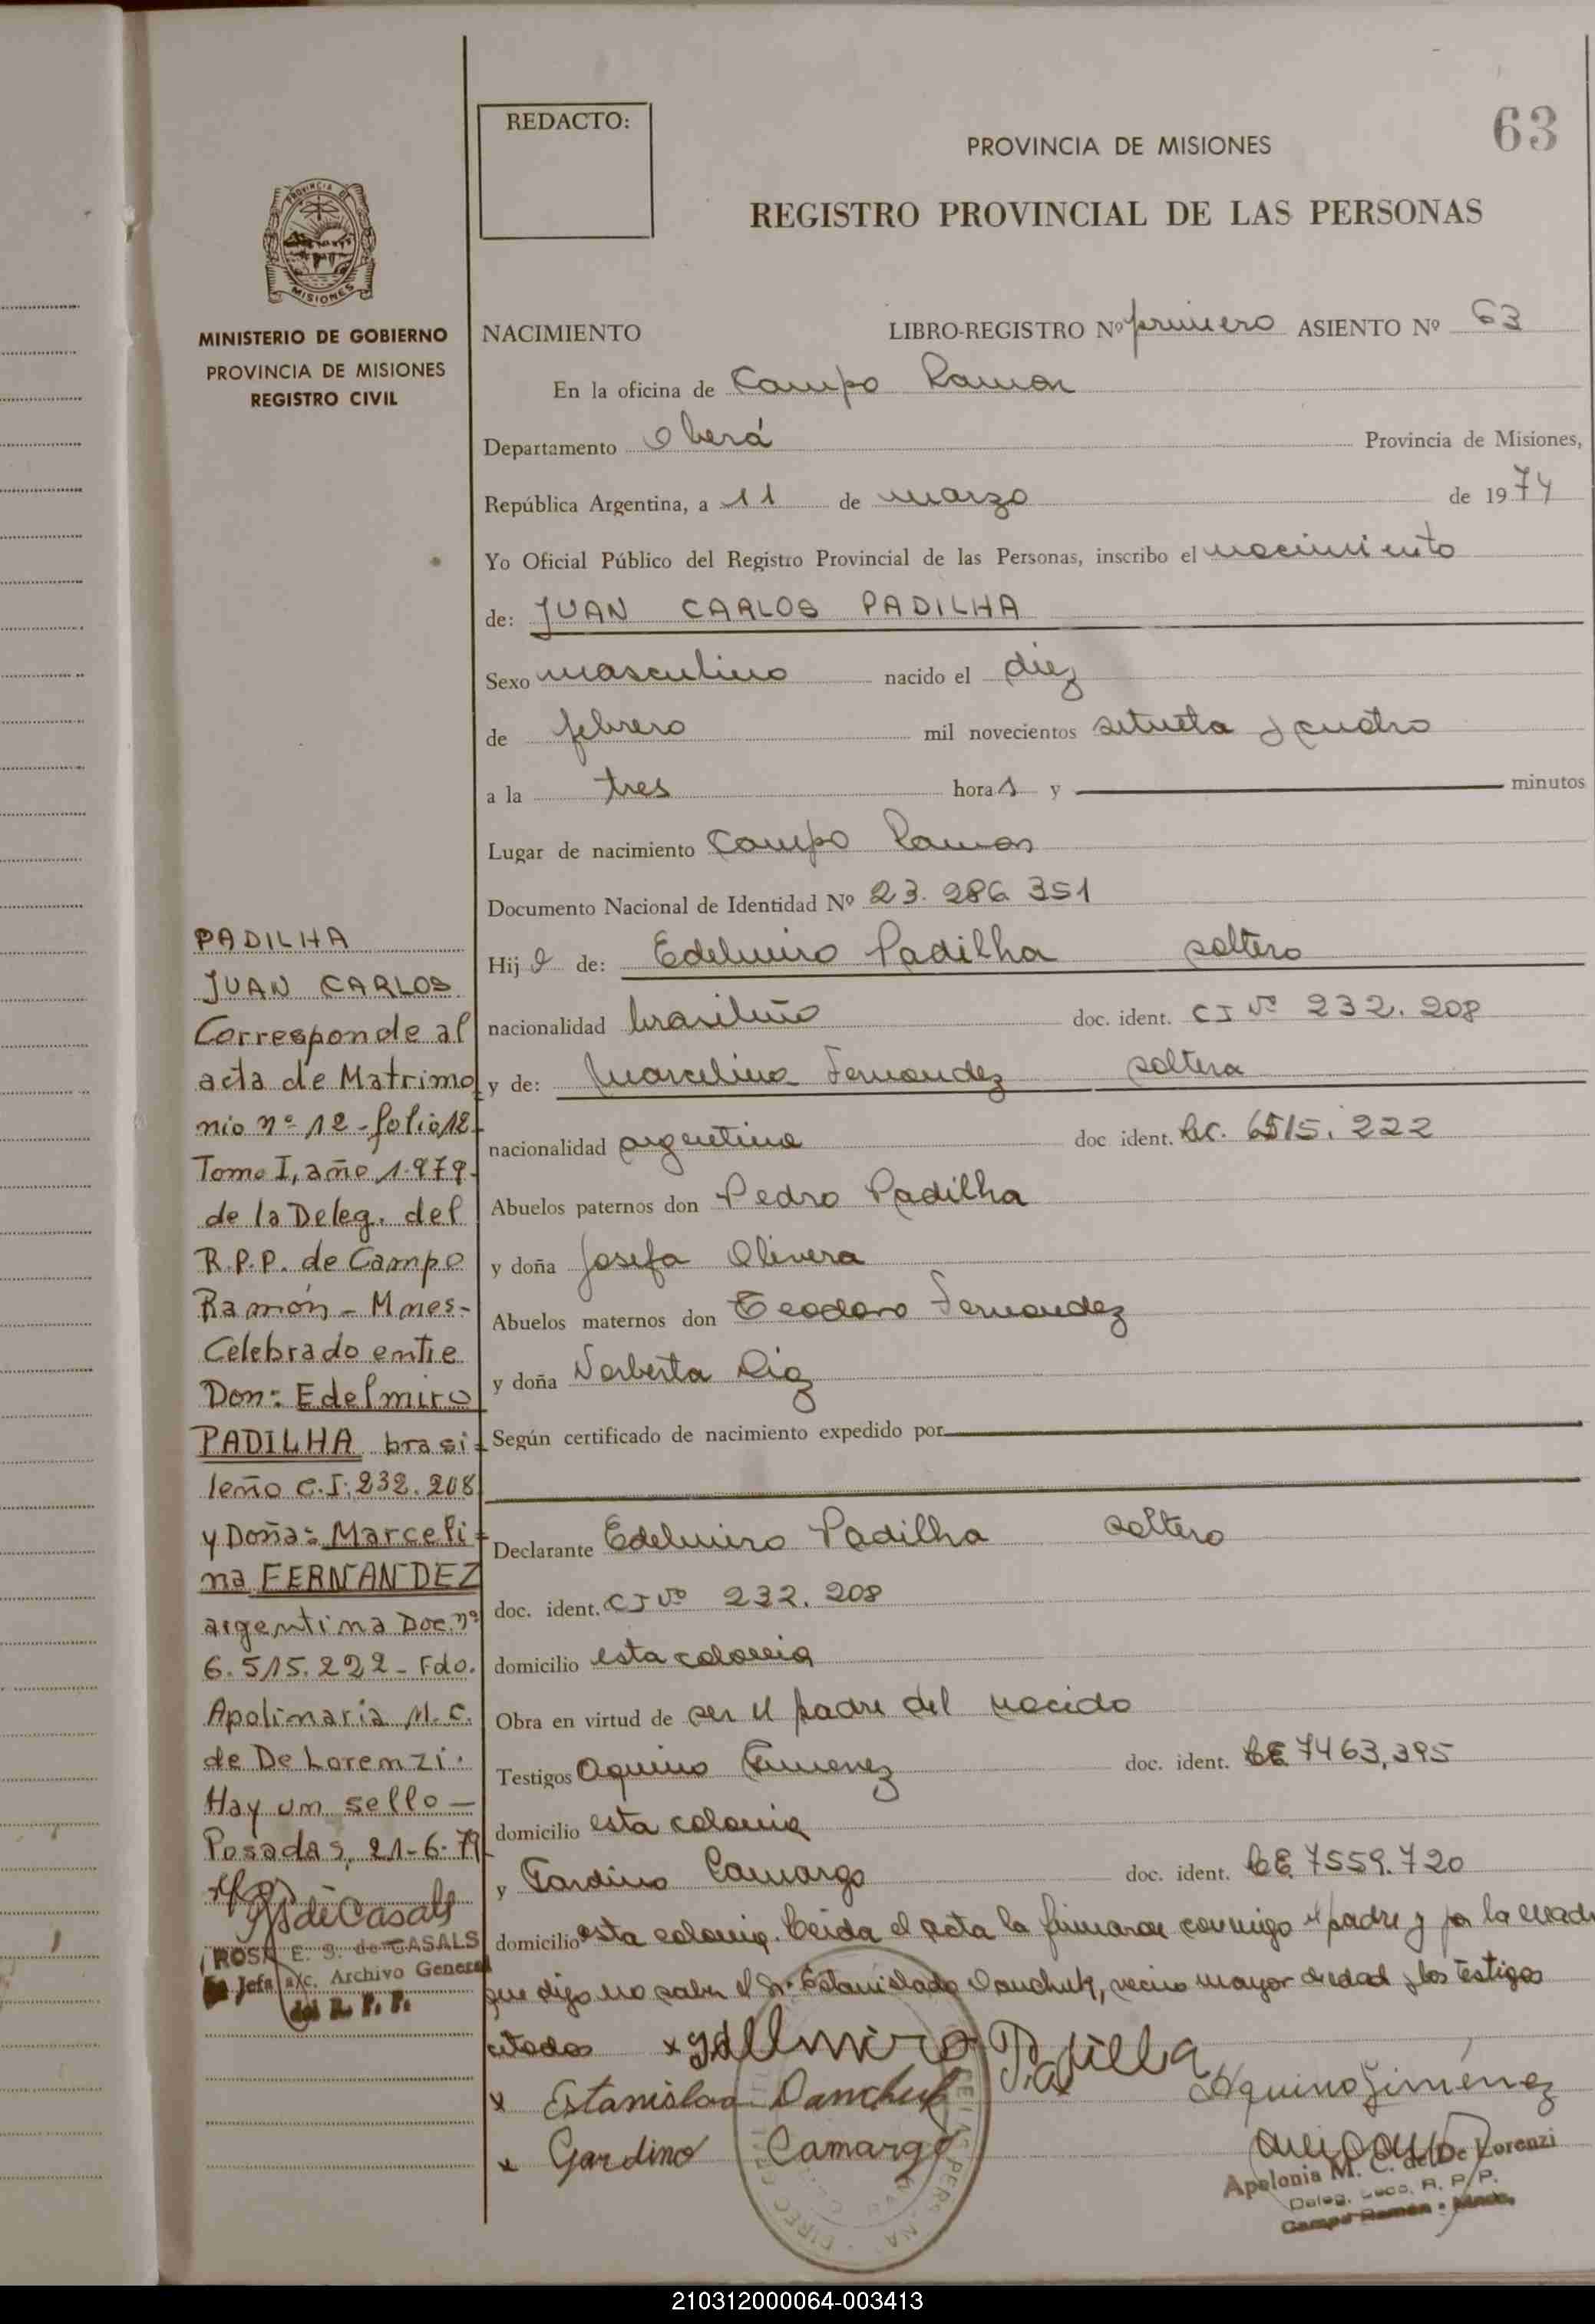 REDACTO:
63
PROVINCIA DE MISIONES
REGISTRO PROVINCIAL DE LAS PERSONAS
PROVINCIA DE
MISIONES
MINISTERIO DE GOBIERNO
PROVINCIA DE MISIONES
REGISTRO CIVIL
NACIMIENTO LIBRO-REGISTRO Nº primero ASIENTO Nº 63
En la oficina de Campo Ramon
Departamento Oberá Provincia de Misiones,
República Argentina, a 11 de marzo de 1974
Yo Oficial Público del Registro Provincial de las Personas, inscribo el nacimiento
de: JUAN CARLOS PADILHA
Sexo masculino nacido el diez
de febrero mil novecientos setenta y cuatro
a la tres horas y minutos
Lugar de nacimiento Campo Ramon
Documento Nacional de Identidad Nº 23.286.351
Hijo de: Edelmiro Padilha soltero
nacionalidad brasileño doc. ident. CI Nº 232.208
y de: Marcelina Fernandez soltera
nacionalidad argentina doc ident. LC. 6515.222
Abuelos paternos don Pedro Padilha
y doña Josefa Olivera
Abuelos maternos don Teodoro Fernandez
y doña Norberta
Según certificado de nacimiento expedido por
Declarante Edelmiro Padilha soltero
doc. ident. CI Nº 232.208
domicilio esta colonia
Obra en virtud de ser el padre del nacido
Testigos Aquino Gimenez doc. ident. LE 7463,395
domicilio esta colonia
y Gardino Camargo doc. ident. LE 7559.720
domicilio esta colonia. Leida el acta la firmaron conmigo el padre y por la madre
que dijo no saber el Sr. Estanislado Danchuk, vecino mayor de edad y los testigos
citados x Edelmiro Padilla
Aquino Jimenez
x Estanislao Danchuk
x Gardino Camargo
Apolonia M. C. de De Lorenzi
Deleg. R. P. P.
Campo Ramon - Mnes.
PADILHA
JUAN CARLOS
Corresponde al
acta de Matrimo
nio nº 12 - folio 12
Tomo I, año 1.979.
de la Deleg. del
R.P.P. de Campo
Ramón - Mnes-
Celebrado entre
Don: Edelmiro
PADILHA brasi-
leño C.I. 232.208
y Doña: Marceli-
na FERNANDEZ
argentina Doc. nº
6.515.222 - Fdo.
Apolinaria M.C.
de De Lorenzi.
Hay un sello -
Posadas, 21-6-79
de Casals
ROSA E. S. de CASALS
Jefa a/c. Archivo General
del R. P. P.
210312000064-003413